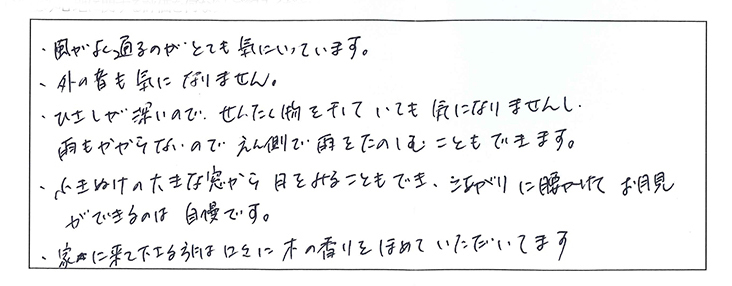 ・風がよく通るのがとても気にいっています。
・外の音も気になりません。
・ひさしが深いので、せんたく物を干していても気になりませんし、
雨もかからないのでえん側で雨をたのしむこともできます。
・ふきぬけの大きな窓から月をみることもでき、小あがりに腰かけてお月見
ができるのは自慢です。
・家に来て下さる方には口々に木の香りをほめていただいてます